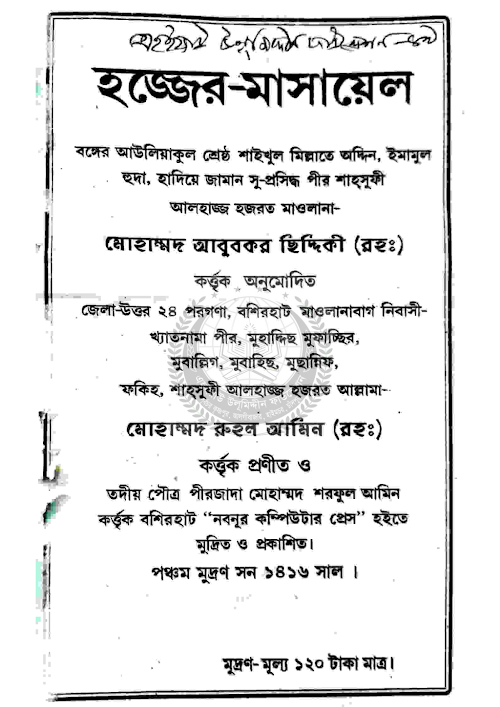 হজ্জের-মাসায়েল
বঙ্গের আউলিয়াকুল শ্রেষ্ঠ শাইখুল মিল্লাতে অদ্দিন, ইমামুল
হুদা, হাদিয়ে জামান সু-প্রসিদ্ধ পীর শাহ্সুফী
আলহাজ্জ হজরত মাওলানা-
মোহাম্মদ আবুবকর ছিদ্দিকী (রহঃ)
কর্ত্তৃক অনুমোদিত
জেলা-উত্তর ২৪ পরগণা, বশিরহাট মাওলানাবাগ নিবাসী-
খ্যাতনামা পীর, মুহাদ্দিছ মুফাচ্ছির,
মুবাল্লিগ, মুবাহিছ, মুছান্নিফ,
ফকিহ, শাহ্সুফী আলহাজ্জ হজরত আল্লামা-
মোহাম্মদ রুহুল আমিন (রহঃ)
কর্ত্তৃক প্রণীত ও
তদীয় পৌত্র পীরজাদা মোহাম্মদ শরফুল আমিন
কর্ত্তৃক বশিরহাট “নবনূর কম্পিউটার প্রেস” হইতে
মুদ্রিত ও প্রকাশিত।
পঞ্চম মুদ্রণ সন ১৪১৬ সাল ।
মুদ্রণ-মূল্য ১২০ টাকা মাত্র।